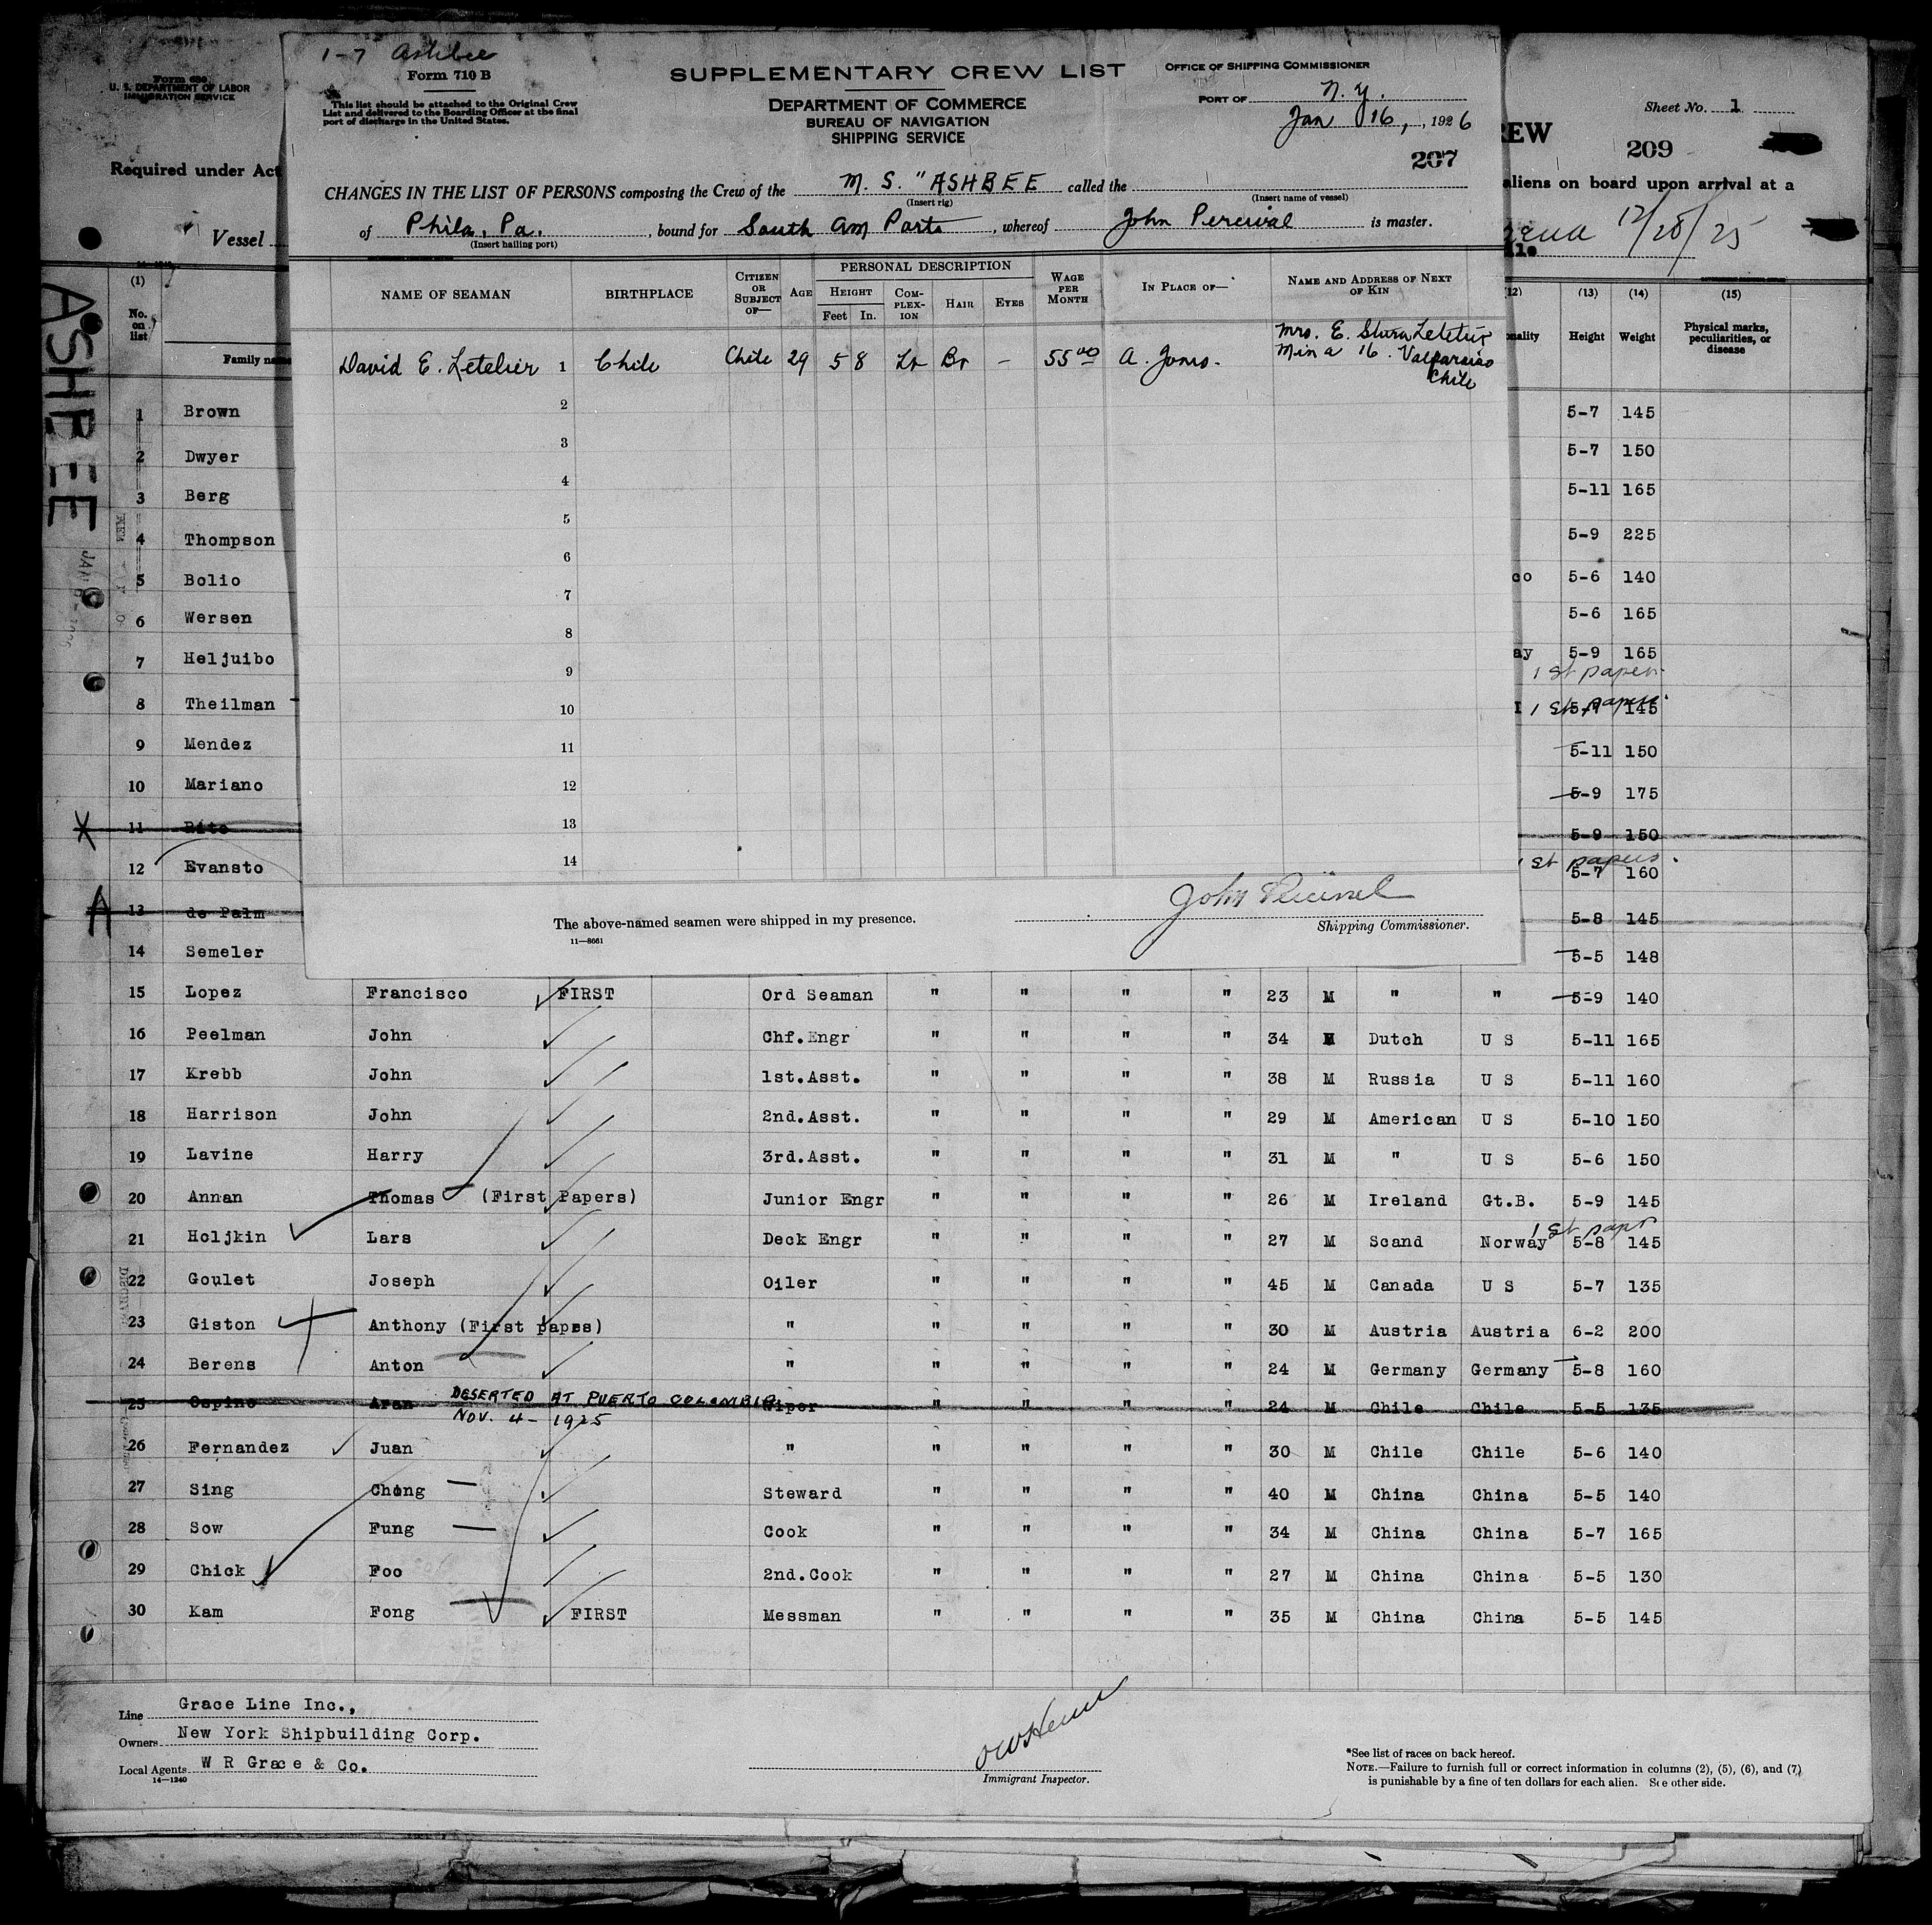 1-7 Ashbee
Form 710 B
This list should be attached to the Original Crew
List and delivered to the Boarding Officer at the final
port of discharge in the United States.
SUPPLEMENTARY CREW LIST
DEPARTMENT OF COMMERCE
BUREAU OF NAVIGATION
SHIPPING SERVICE
OFFICE OF SHIPPING COMMISSIONER
PORT OF N. Y.
Jan 16, , 1926
207
CHANGES IN THE LIST OF PERSONS composing the Crew of the M. S. "ASHBEE called the
(Insert rig) (Insert name of vessel)
of Phila, Pa. , bound for South Am Ports , whereof John Percival is master.
(Insert hailing port)
NAME OF SEAMAN BIRTHPLACE CITIZEN OR SUBJECT OF— AGE PERSONAL DESCRIPTION HEIGHT Feet In. COMPLEXION HAIR EYES WAGE PER MONTH IN PLACE OF— NAME AND ADDRESS OF NEXT OF KIN
David E. Letelier 1 Chile Chile 29 5 8 Lt Br – 55 00 A. Jones. Mrs. E.
Mina 16. Valparaiso
Chile
2
3
4
5
6
7
8
9
10
11
12
13
14
The above-named seamen were shipped in my presence.
11—8661
Shipping Commissioner.
Form 680
U. S. DEPARTMENT OF LABOR
IMMIGRATION SERVICE
Required under Act
Vessel
EW
Sheet No. 1
209
aliens on board upon arrival at a
12/28/25
ASHBEE
(1) (12) (13) (14) (15)
No. on list Family name nality Height Weight Physical marks, peculiarities, or disease
1 Brown 5-7 145
2 Dwyer 5-7 150
3 Berg 5-11 165
4 Thompson 5-9 225
5 Bolio co 5-6 140
6 Wersen 5-6 165
7 Heljuibo ay 5-9 165
1st papers
8 Theilman 1st papers 5-7 145
9 Mendez 5-11 150
10 Mariano 5-9 175
11 Rite 5-9 150
1st papers
12 Evansto 5-7 160
13 de Palm 5-8 145
14 Semeler 5-5 148
15 Lopez Francisco FIRST Ord Seaman " " " " 23 M " " 5-9 140
16 Peelman John Chf.Engr " " " " 34 M Dutch U S 5-11 165
17 Krebb John 1st.Asst. " " " " 38 M Russia U S 5-11 160
18 Harrison John 2nd.Asst. " " " " 29 M American U S 5-10 150
19 Lavine Harry 3rd.Asst. " " " " 31 M " U S 5-6 150
20 Annan Thomas (First Papers) Junior Engr " " " " 26 M Ireland Gt.B. 5-9 145
1st papr
21 Holjkin Lars Deck Engr " " " " 27 M Scand Norway 5-8 145
22 Goulet Joseph Oiler " " " " 45 M Canada U S 5-7 135
23 Giston Anthony (First papes) " " " " " 30 M Austria Austria 6-2 200
24 Berens Anton " " " " " 24 M Germany Germany 5-8 160
25 Ospino Aran DESERTED AT PUERTO COLOMBIA Wiper " " " " 24 M Chile Chile 5-5 135
NOV. 4 - 1925
26 Fernandez Juan " " " " " 30 M Chile Chile 5-6 140
27 Sing Chong Steward " " " " 40 M China China 5-5 140
28 Sow Fung Cook " " " " 34 M China China 5-7 165
29 Chick Foo 2nd.Cook " " " " 27 M China China 5-5 130
30 Kam Fong FIRST Messman " " " " 35 M China China 5-5 145
Line Grace Line Inc.,
Owners New York Shipbuilding Corp.
Local Agents W R Grace & Co.
14—1240
Immigrant Inspector.
*See list of races on back hereof.
NOTE.—Failure to furnish full or correct information in columns (2), (5), (6), and (7)
is punishable by a fine of ten dollars for each alien. See other side.